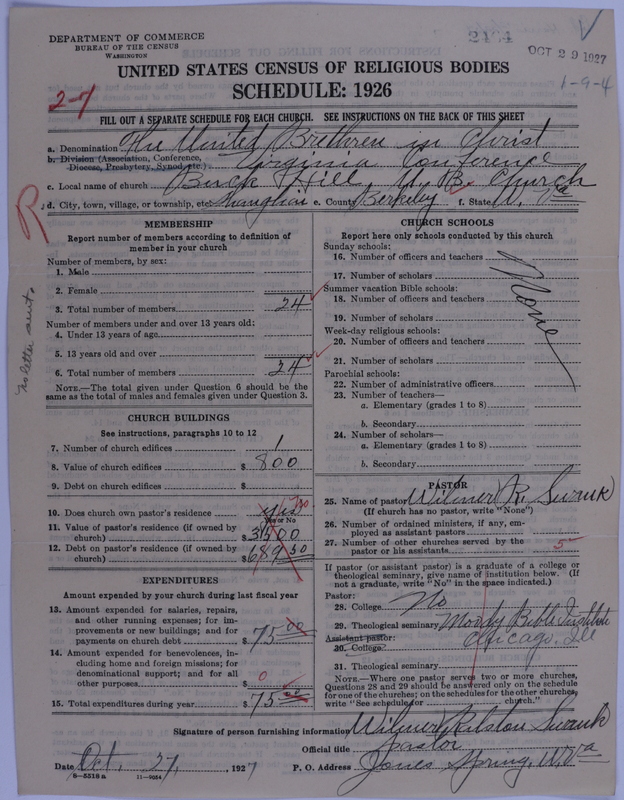 DEPARTMENT OF COMMERCE
BUREAU OF THE CENSUS
WASHINGTON
OCT 29 1927
1-9-4
UNITED STATES CENSUS OF RELIGIOUS BODIES
SCHEDULE: 1926
2-7
FILL OUT A SEPARATE SCHEDULE FOR EACH CHURCH. SEE INSTRUCTIONS ON THE BACK OF THIS SHEET
a. Denomination The United Brethren in Christ
b. Division (Association, Conference, Diocese, Presbytery, Synod, etc.) Virginia Conference
c. Local name of church Buck Hill U. B. Church
d. City, town, village, or township, etc. Shanghai e. County Berkeley f. State W. Va
R
MEMBERSHIP
Report number of members according to definition of member in your church
Number of members, by sex:
1. Male
2. Female
3. Total number of members 24
Number of members under and over 13 years old:
4. Under 13 years of age
5. 13 years old and over
6. Total number of members 24
NOTE.—The total given under Question 6 should be the same as the total of males and females given under Question 3.
No letter sent.
CHURCH BUILDINGS
See instructions, paragraphs 10 to 12
7. Number of church edifices 1
8. Value of church edifices $800
9. Debt on church edifices $
10. Does church own pastor's residence yes no
Yes or No
11. Value of pastor's residence (if owned by church) $3500
12. Debt on pastor's residence (if owned by church) $689.50
EXPENDITURES
Amount expended by your church during last fiscal year
13. Amount expended for salaries, repairs, and other running expenses; for improvements or new buildings; and for payments on church debt $75.00
14. Amount expended for benevolences, including home and foreign missions; for denominational support; and for all other purposes $ 0
15. Total expenditures during year $75.00
CHURCH SCHOOLS
Report here only schools conducted by this church
Sunday schools:
16. Number of officers and teachers
17. Number of scholars
Summer vacation Bible schools:
18. Number of officers and teachers
19. Number of scholars
None
Week-day religious schools:
20. Number of officers and teachers
21. Number of scholars
Parochial schools:
22. Number of administrative officers
23. Number of teachers—
a. Elementary (grades 1 to 8)
b. Secondary
24. Number of scholars—
a. Elementary (grades 1 to 8)
b. Secondary
PASTOR
25. Name of pastor Wilmer R. Swank
(If church has no pastor, write "None")
26. Number of ordained ministers, if any, employed as assistant pastors
27. Number of other churches served by the pastor or his assistants 5
If pastor (or assistant pastor) is a graduate of a college or theological seminary, give name of institution below. (If not a graduate, write "No" in the space indicated.)
Pastor:
28. College No
29. Theological seminary Moody Bible Institute
Chicago, Ill
Assistant pastor:
30. College
31. Theological seminary
NOTE.—Where one pastor serves two or more churches, Questions 28 and 29 should be answered only on the schedule for one of the churches; on the schedules for the other churches, write "See schedule for church."
Signature of person furnishing information Wilmer Ralston Swank
Official title Pastor
Date Oct. 27, 1927 P. O. Address Jones Spring, W. Va
8-5518a 11-9034